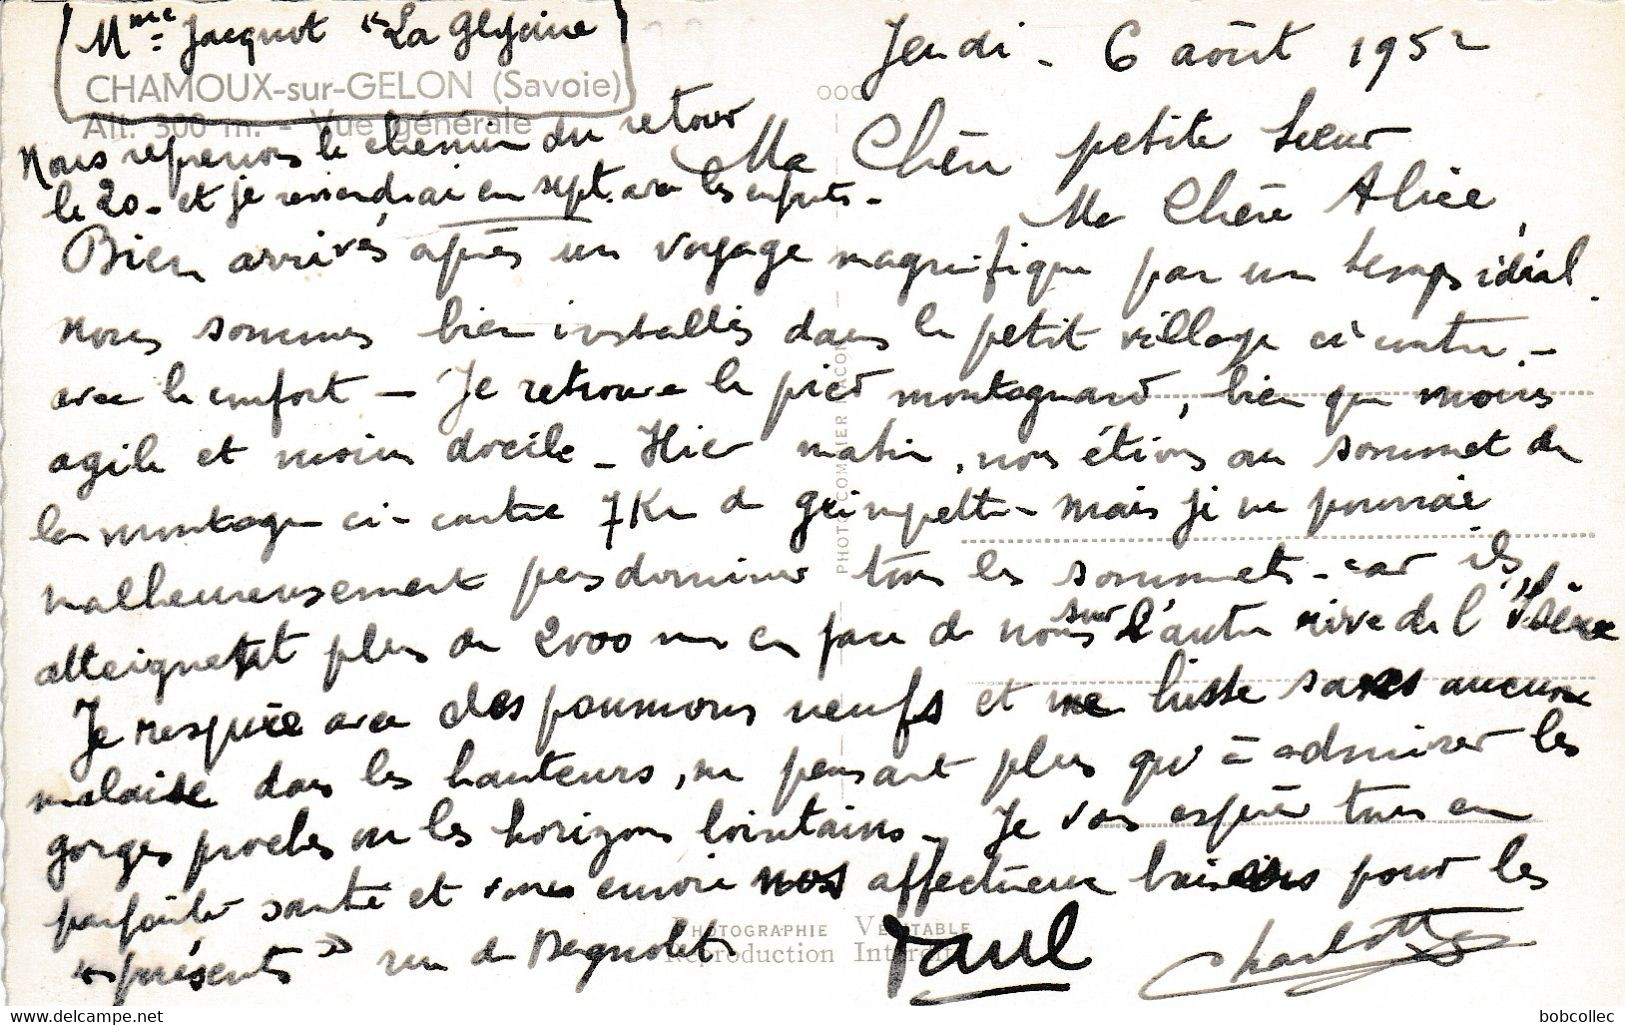 Mme Jacquot "La Glycine
CHAMOUX-sur-GELON (Savoie)
Alt. 300 m. - Vue générale
Jeudi - 6 août 1952
Nous reprenons le chemin du retour
le 20 - et je reviendrai en sept. avec les enfants -
Ma Chère petite soeur
Ma Chère Alice,
Bien arrivés après un voyage magnifique par un temps idéal.
nous sommes bien installés dans le petit village ci contre -
avec le confort - Je retrouve le pied montagnard, bien que moins
agile et moins docile - Hier matin, nous étions au sommet de
la montagne ci-contre 7Km de grimpette - mais je ne pourrai
malheureusement pas dominer tous les sommets - car ils
atteignent plus de 2000 m en face de nous sur l'autre rive de l'Isère
Je respire avec des poumons neufs et me hisse sans aucun
malaise dans les hauteurs, ne pensant plus qu'à admirer les
gorges proches ou les horizons lointains - Je vous espère tous en
parfaite santé et vous envoie nos affectueux baisers pour les
"présents" rue de Bagnolet
Paul Charlotte
PHOTOGRAPHIE VÉRITABLE
Reproduction Inter
PHOTO COMBIER MACON
bobcollec